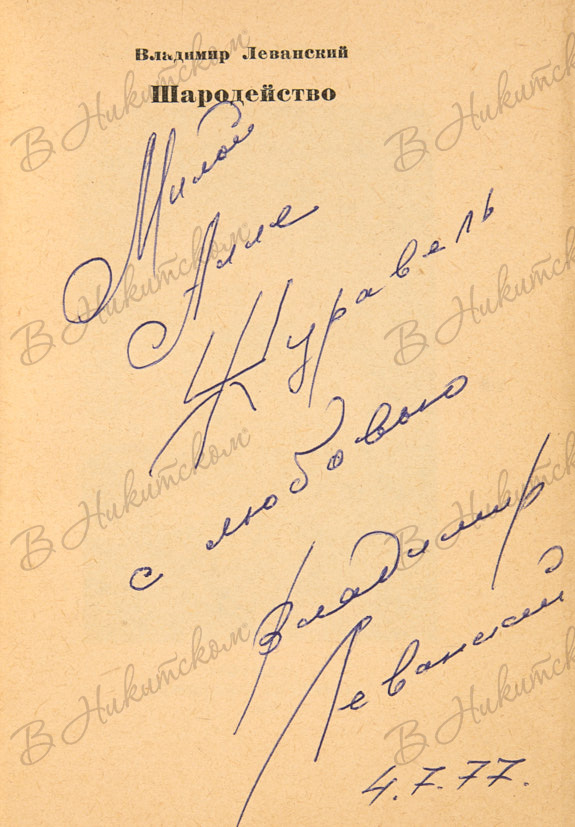 Владимир Леванский
Шародейство
Милой
Алле
Журавель
с любовью
Владимир
Леванский
4.7.77.
В Никитском
В Никитском
В Никитском
В Никитском
В Никитском
В Никитском
В Никитском
В Никитском